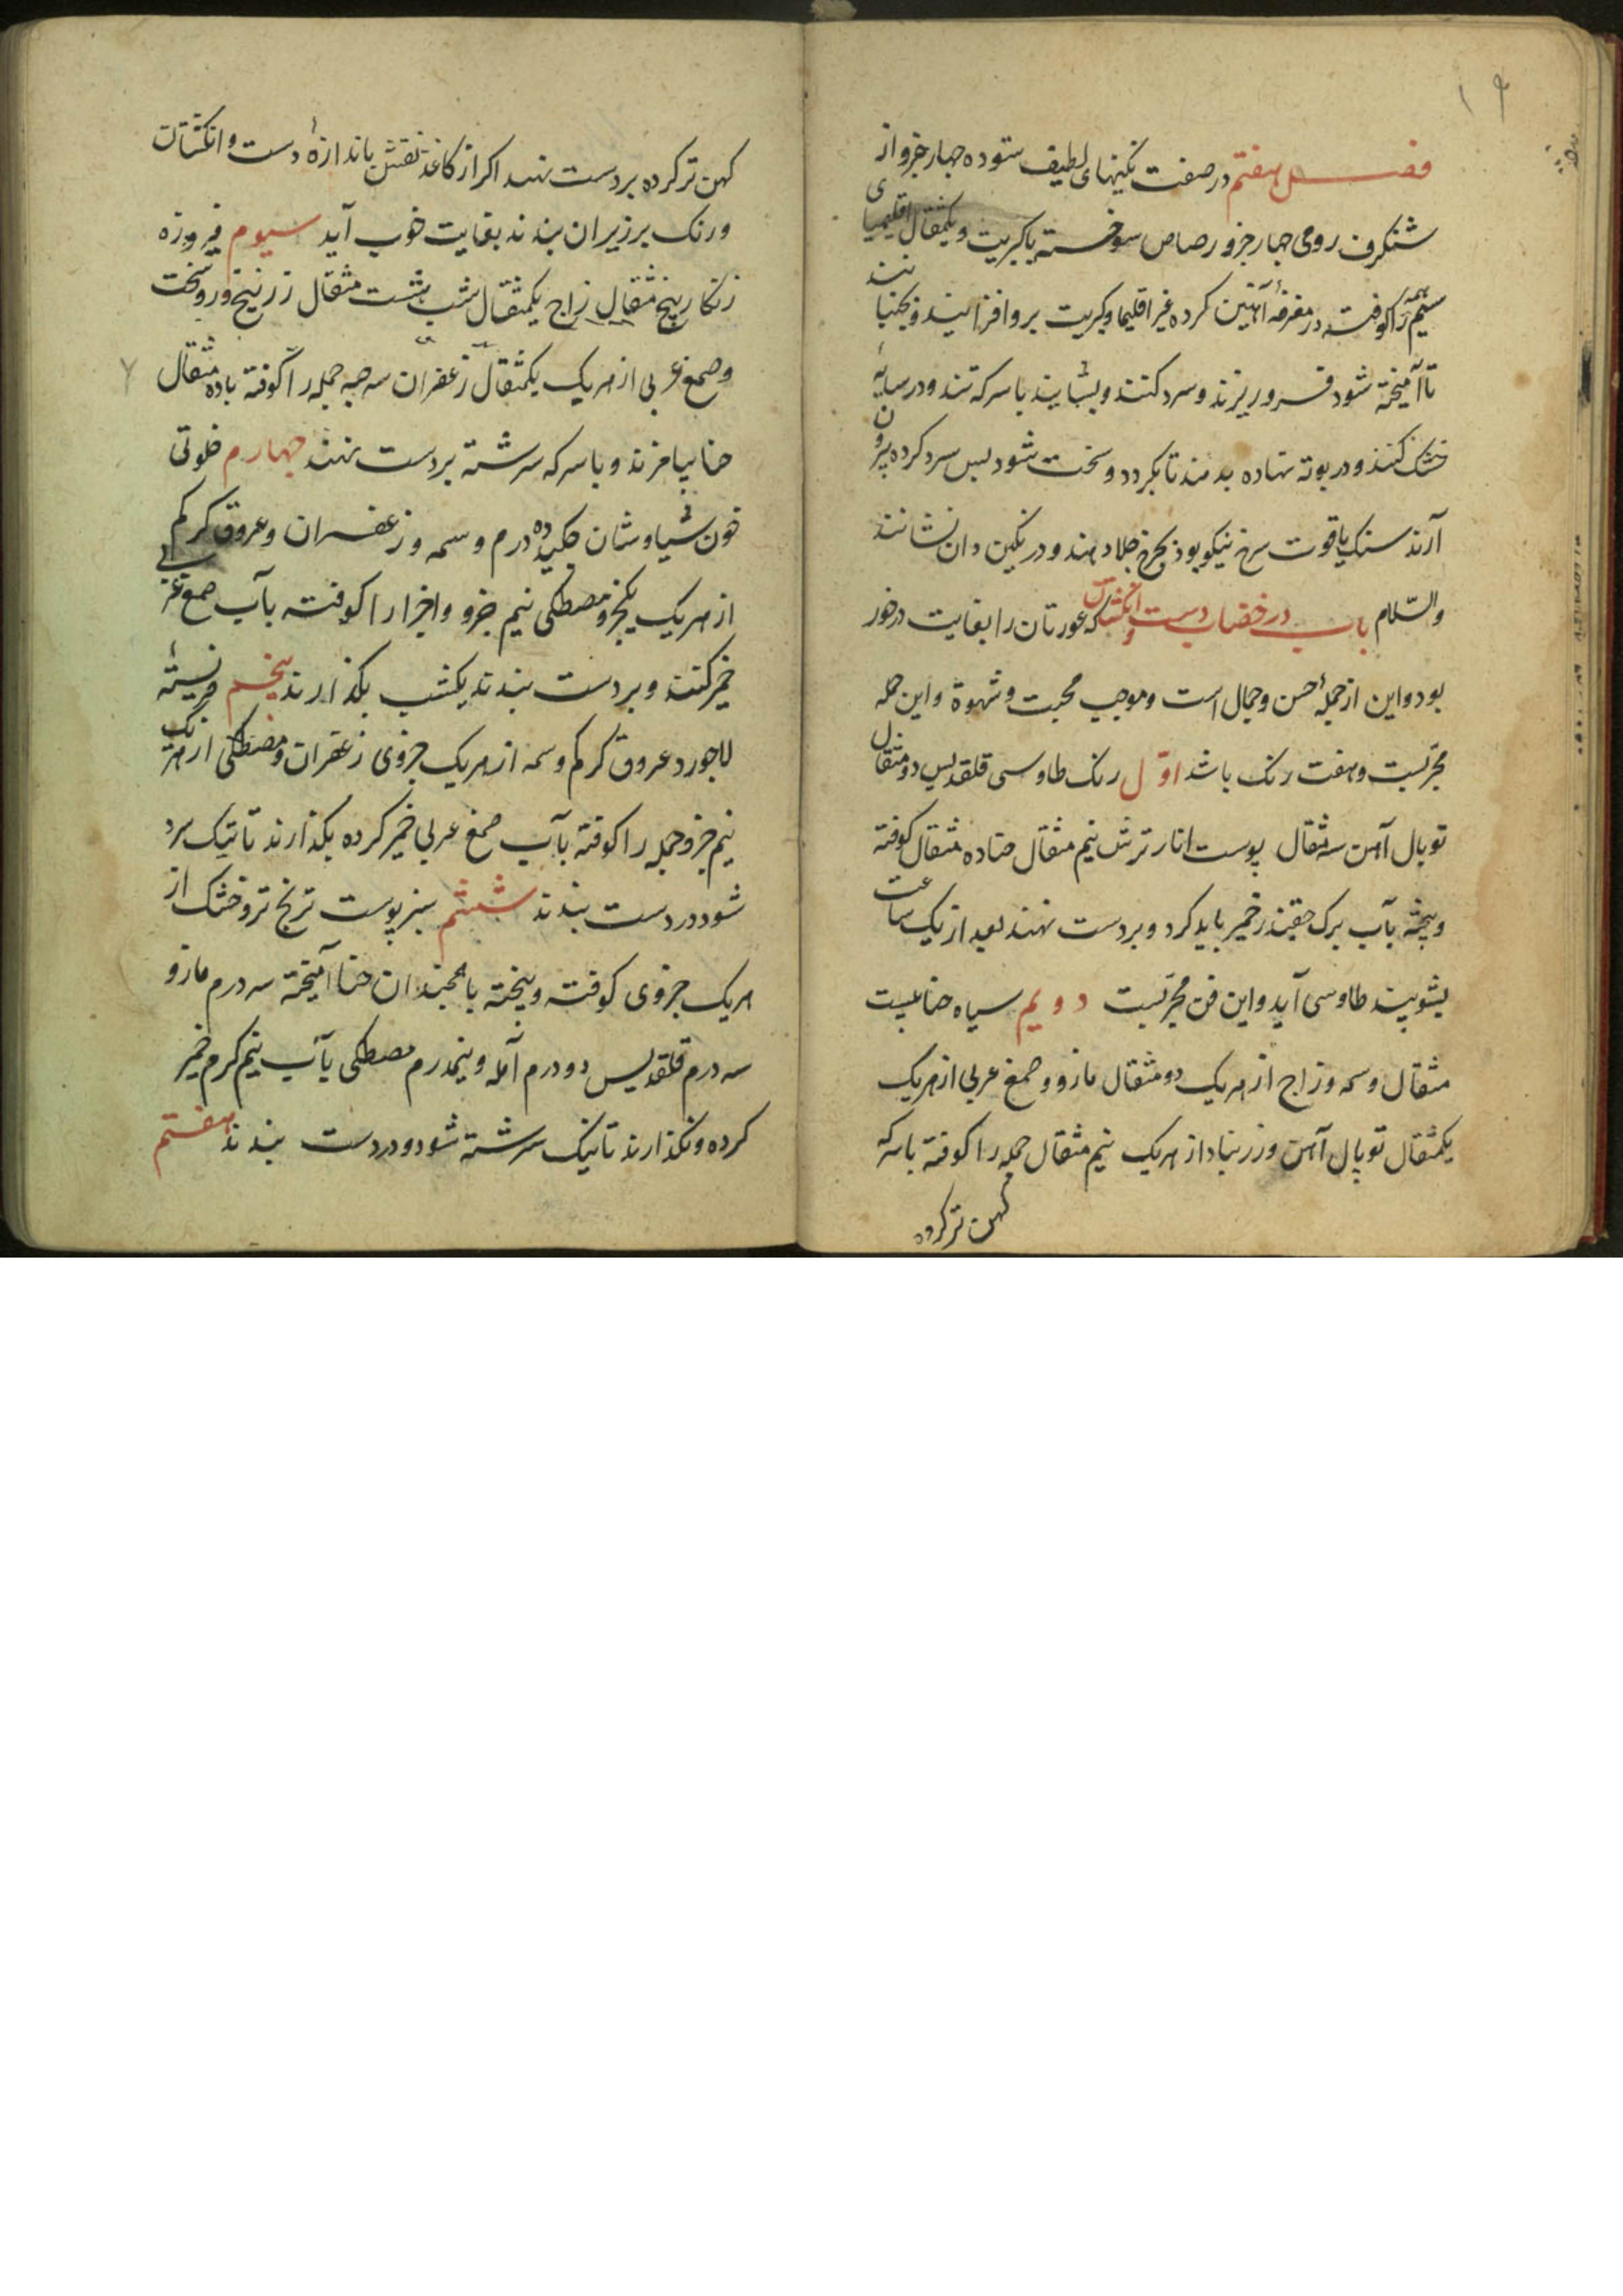 ۱۹
فصل هفتم در صفت نکینهای لطیف ستوده چهار جزو از
شنکرف رومی چهار جزو رصاص سوخته با کبریت و یکمثقال اقلیمیای
همه را کوفته در مغرفهٔ آهنین کرده غیر اقلیما و کبریت برو افزایند و بجنبانند
تا آمیخته شود فرو ریزند و سرد کنند و بسایند با سرکه تند و در سایهٔ
خشک کنند و در بوته نهاده بدمند تا بکردد و سخت شود پس سرد کرده بیرون
آرند سنک یاقوت سرخ نیکو بود بچرخ جلا دهند و در نکین دان نشانند
والسّلام باب در خضاب دست و انکشتان که عورتان را بغایت درخور
بود و این از جملهٔ حسن و جمال است و موجب محبت و شهوة و این جمله
مجرّبست و هفت رنک باشد اوّل رنک طاوسی قلقدیس دو مثقال
توبال آهن سه مثقال پوست انار ترش نیم مثقال حنا ده مثقال کوفته
و بیخته بآب برک چقندر خمیر باید کرد و بردست نهند بعد از یک ساعت
بشویند طاوسی آید و این فن مجرّبست دویم سیاه حنا بیست
مثقال وسمه و زاج از هریک دو مثقال مازو و صمغ عربی از هریک
یکمثقال توبال آهن و زرنباد از هریک نیم مثقال جمله را کوفته با سرکه
کهن تر کرده
کهن تر کرده بردست نهند اکر از کاغذ نقش باندازهٔ دست و انکشتان
و رنک برزیران بندند بغایت خوب آید سیوم فیروزه
زنکار پنج مثقال زاج یکمثقال شب هشت مثقال زرنیخ و روسخت
و صمغ عربی از هریک یکمثقال زعفران سه حبه جمله را کوفته با ده مثقال
حنا بیامزند و با سرکه سرشته بردست نهند چهارم خلوتی
خون سیاوشان چکیده ده درم وسمه و زعفران و عروق کرکم
از هریک یکجزو مصطکی نیم جزو و اجزا را کوفته بآب صمغ عربی
خمیر کنند و بردست بندند یکشب بکذارند پنجم
لاجورد عروق کرکم وسمه از هریک جزوی زعفران و مصطکی از هریک
نیم جزو جمله را کوفته بآب صمغ عربی خمیر کرده بکذارند تا نیک سرد
شود در دست بندند ششم سبز پوست ترنج تر و خشک از
هریک جزوی کوفته و بیخته با همچندان حنا آمیخته سه درم مازو
سه درم قلقدیس دو درم آمله و نیمدرم مصطکی بآب نیم کرم خمیر
کرده و نکذارند تا نیک سرشته شود و در دست بندند هفتم